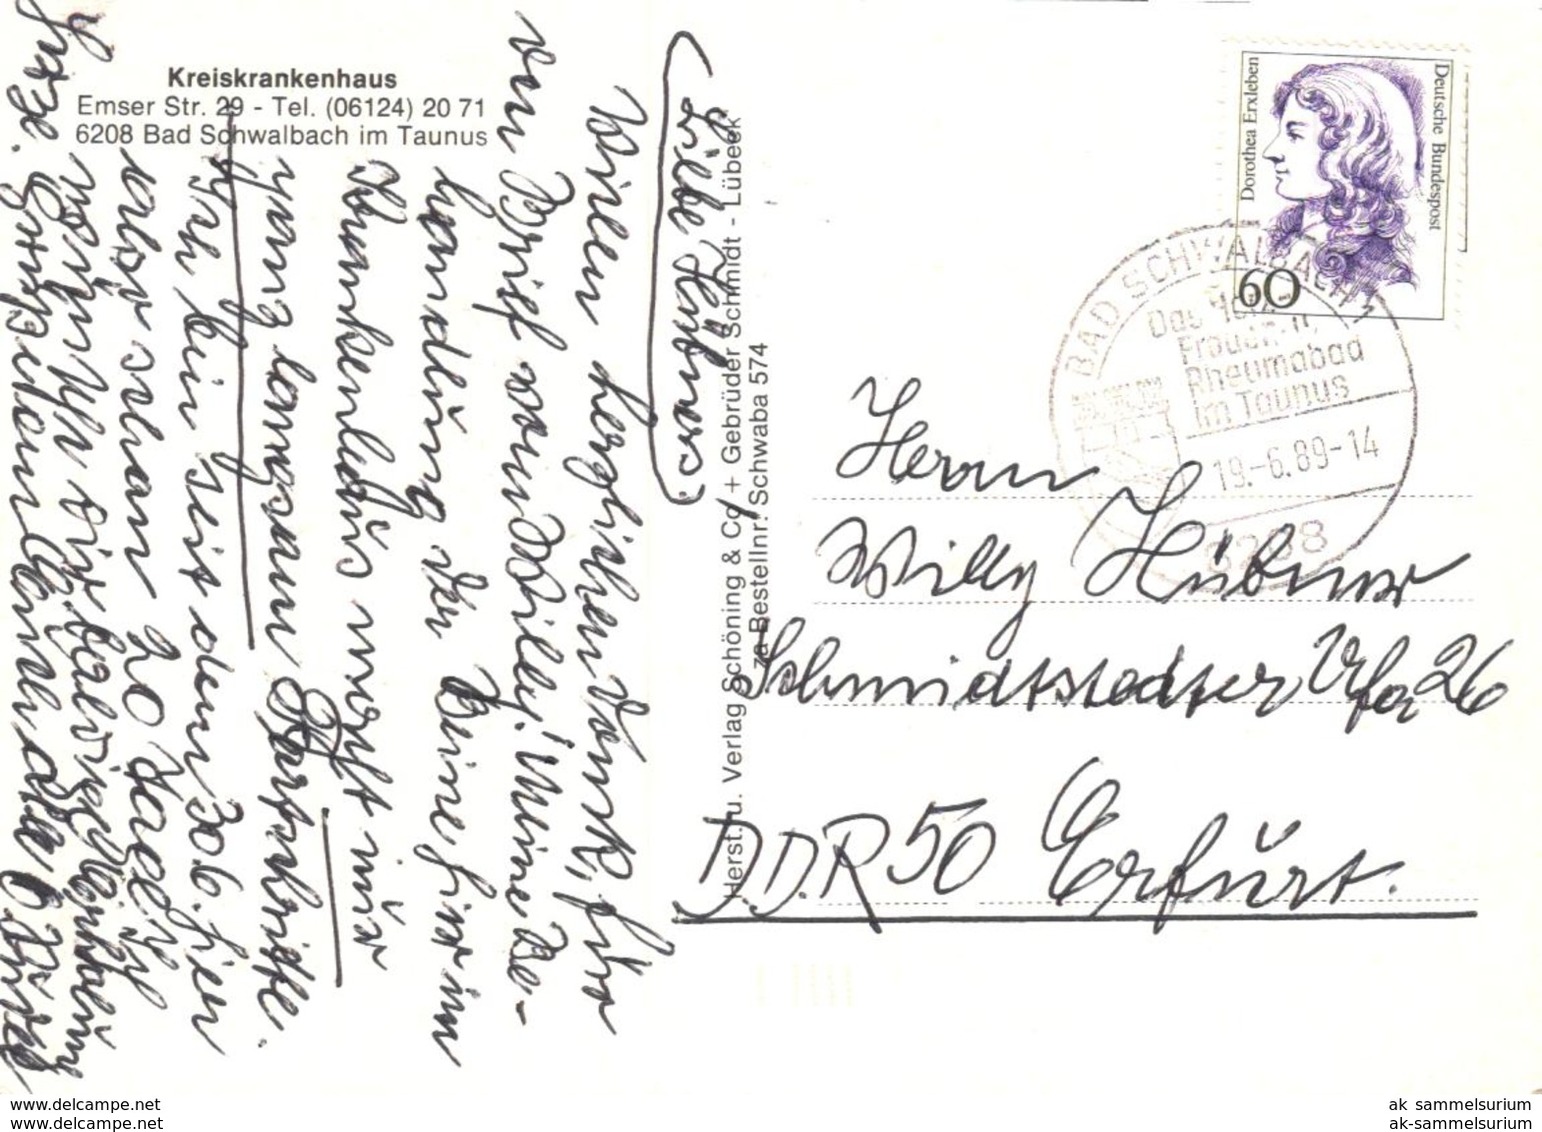 Kreiskrankenhaus
Emser Str. 29 - Tel. (06124) 20 71
6208 Bad Schwalbach im Taunus
Liebe Hübners
Vielen herzlichen Dank, für
den Brief von Willy! Meine Be-
handlung der Beine hier im
Krankenhaus macht nur
ganz langsam Fortschritte.
Ich bin seit dem 30.6. hier
also schon 20 Tage. Ich
wünsche dir
Herst. u. Verlag Schöning & Co. + Gebrüder Schmidt - Lübeck
Bestellnr. Schwaba 574
Dorothea Erxleben
Deutsche Bundespost
60
BAD SCHWALBACH 1
Das
Frauen- u.
Rheumabad
im Taunus
19.-6.89-14
Herrn
Willy Hübner
Schmidtstedter Ufer 26
DDR 50 Erfurt.
www.delcampe.net
www.delcampe.net
ak_sammelsurium
ak-sammelsurium